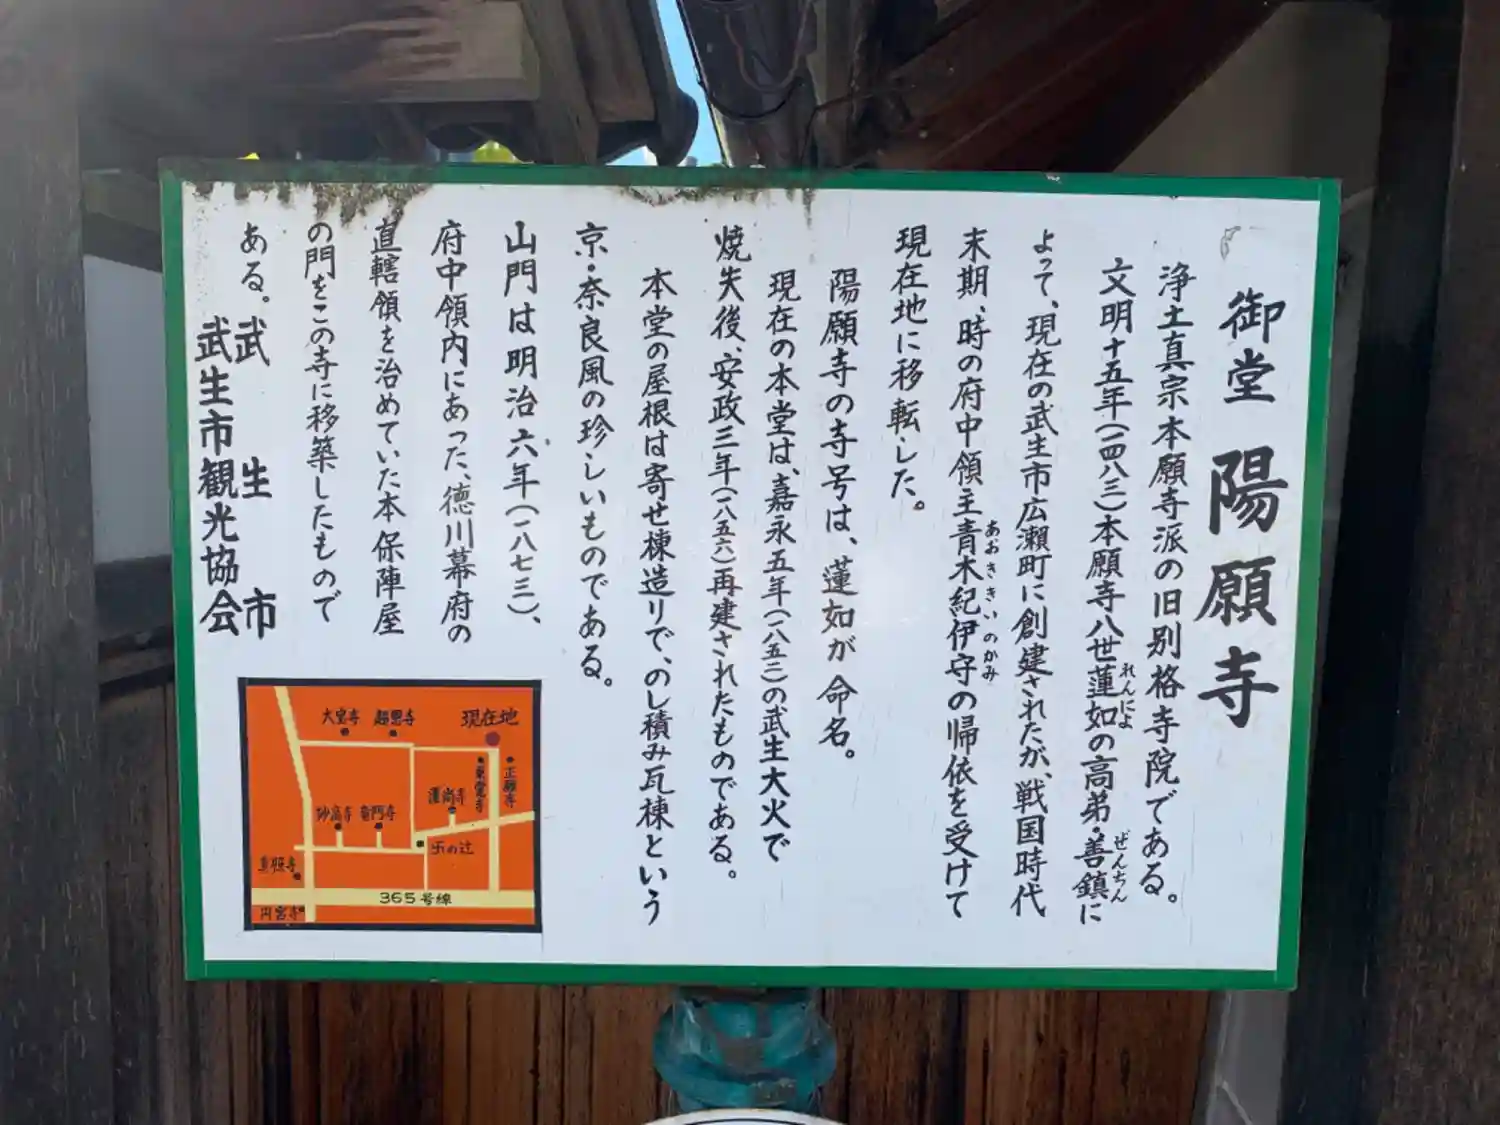 御堂 陽願寺
浄土真宗本願寺派の旧別格寺院である。
文明十五年(一四八三)本願寺八世蓮如の高弟・善鎮に
れんにょ
ぜんちん
よって、現在の武生市広瀬町に創建されたが、戦国時代
末期、時の府中領主青木紀伊守の帰依を受けて
あおききいのかみ
現在地に移転した。
陽願寺の寺号は、蓮如が命名。
現在の本堂は、嘉永五年(一八五二)の武生大火で
焼失後、安政三年(一八五六)再建されたものである。
本堂の屋根は寄せ棟造りで、のし積み瓦棟という
京・奈良風の珍しいものである。
山門は明治六年(一八七三)、
府中領内にあった、徳川幕府の
直轄領を治めていた本保陣屋
の門をこの寺に移築したもので
ある。
武生市
武生市観光協会
大宝寺
現在地
正願寺
妙高寺
竜門寺
365号線
円宮寺